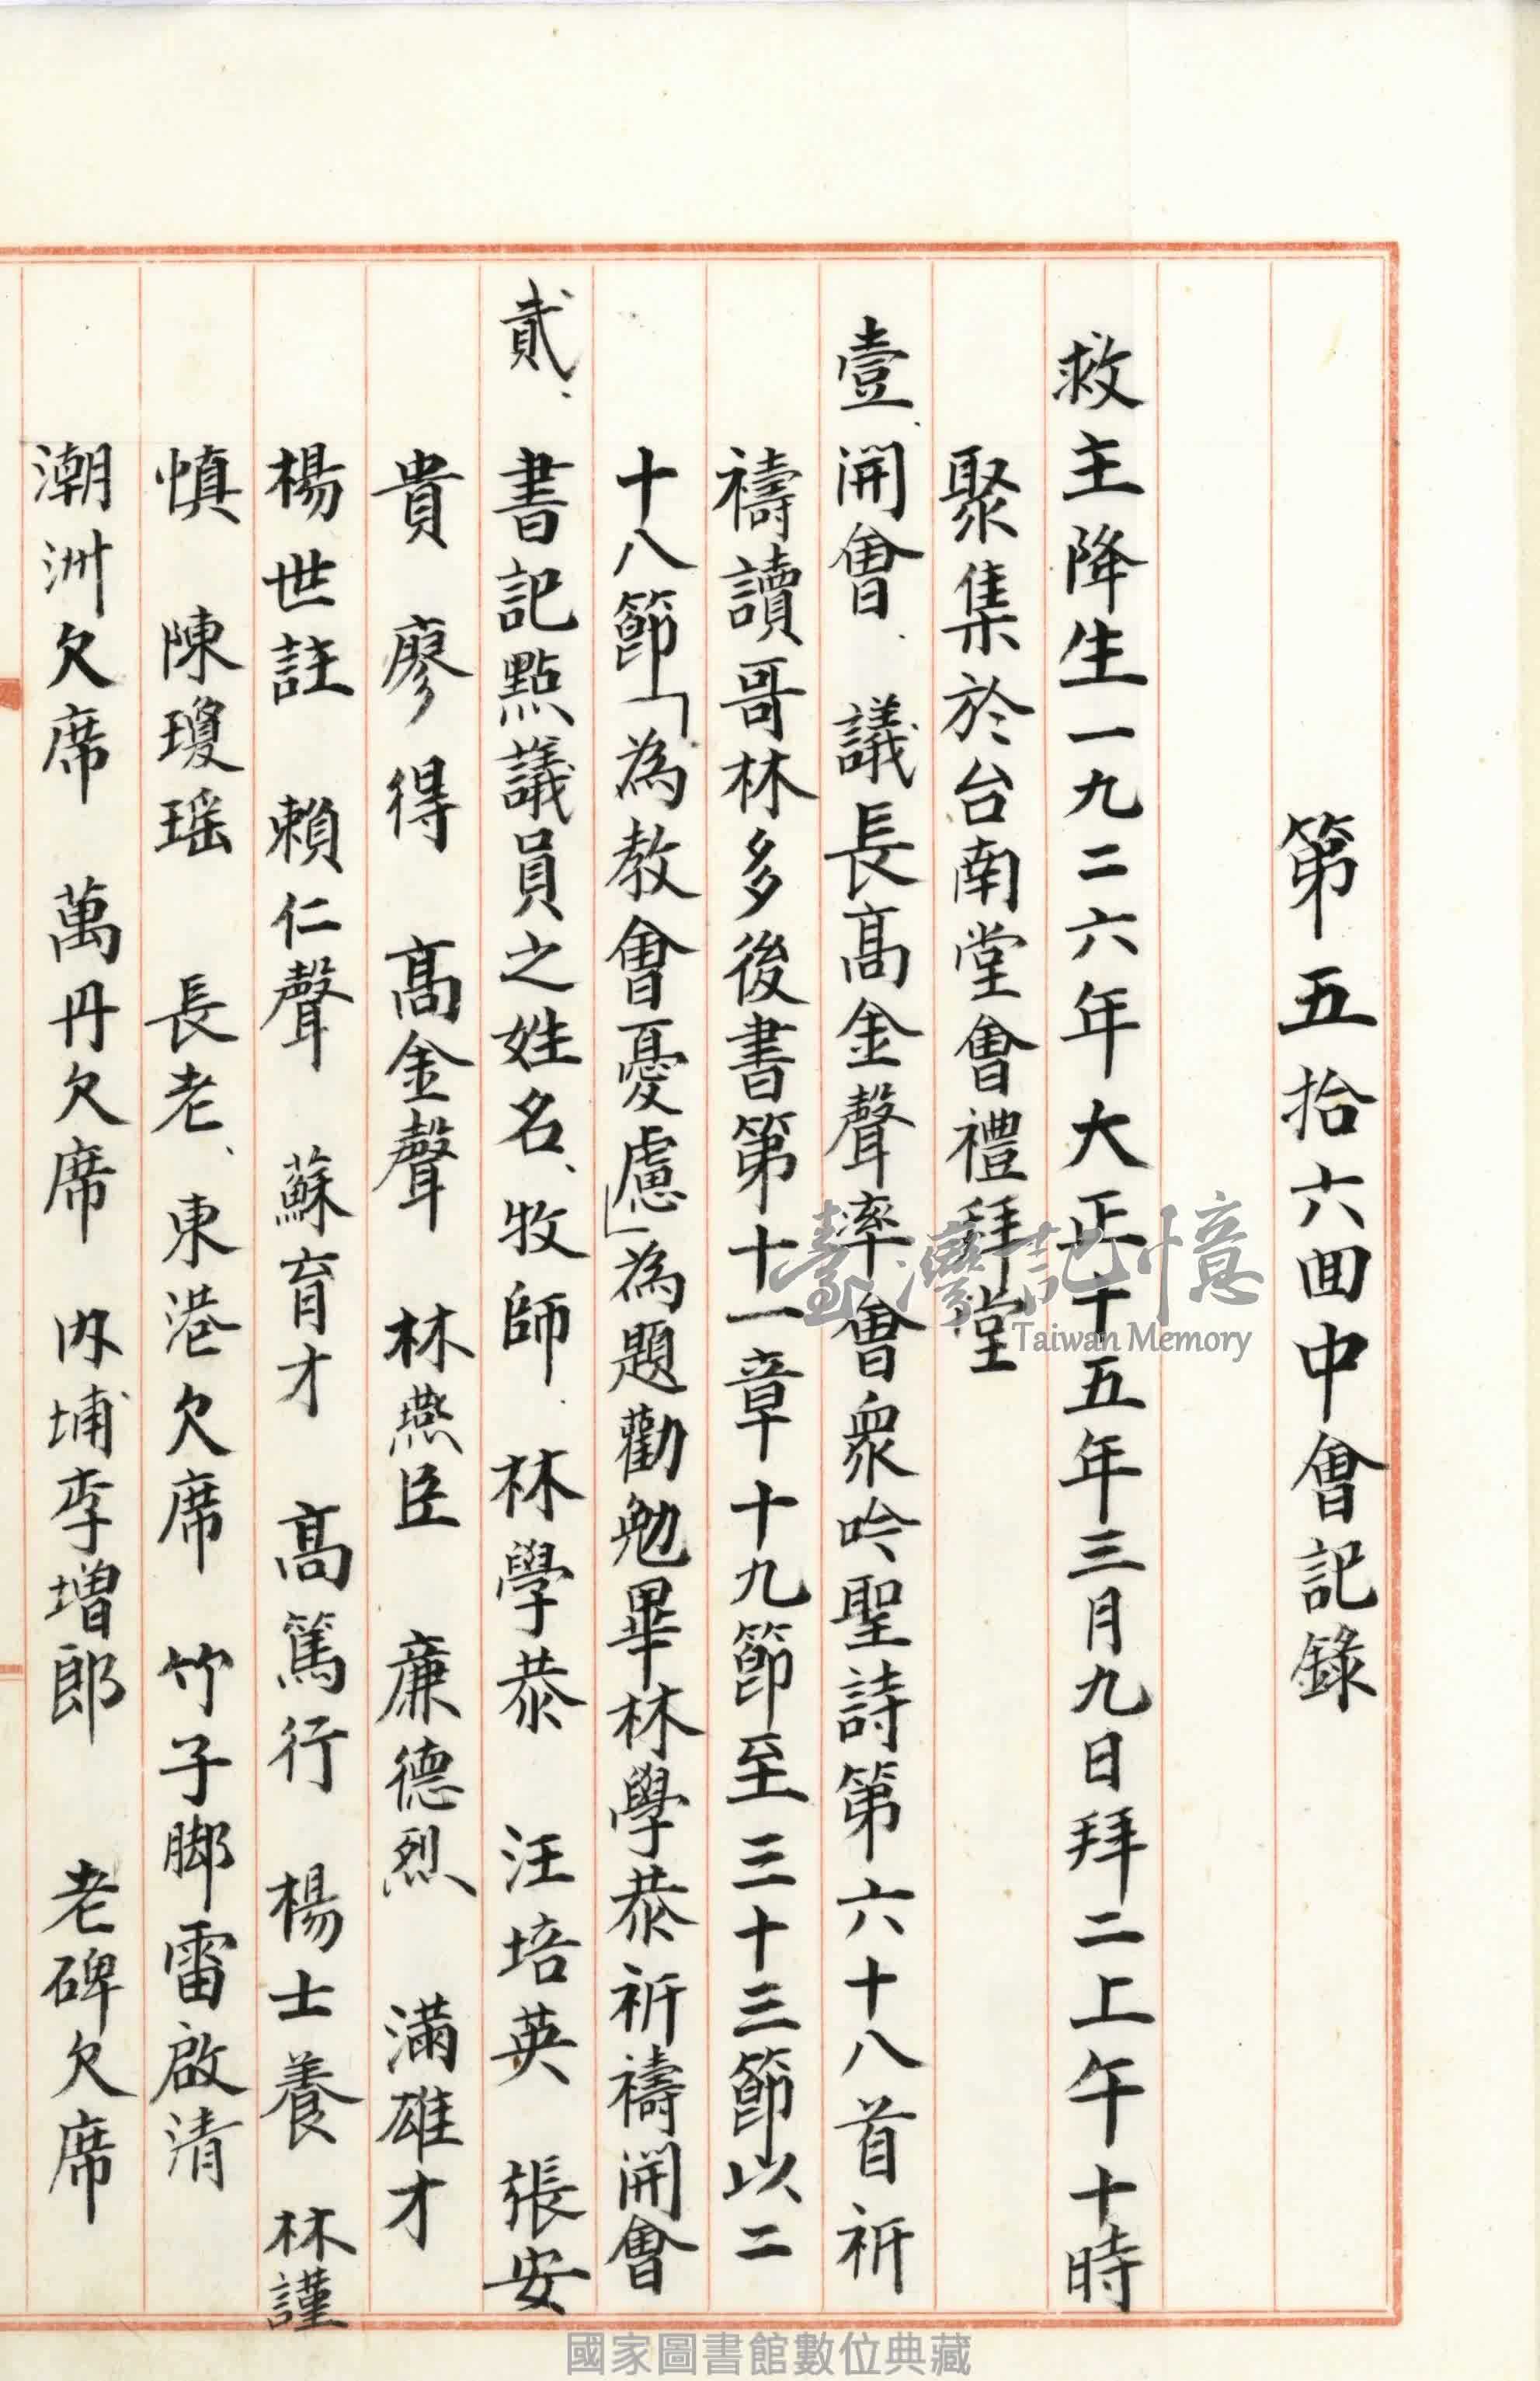 第五拾六回中會記錄
救主降生一九二六年大正十五年三月九日拜二上午十時
聚集於台南堂會禮拜堂
壹、開會、議長高金聲率會眾吟聖詩第六十八首祈
禱讀哥林多後書第十一章十九節至三十三節以二
十八節「為教會憂慮」為題勸勉畢林學恭祈禱開會
貳、書記點議員之姓名、牧師、林學恭 汪培英 張安
貴 廖得 高金聲 林燕臣 廉德烈 滿雄才
楊世註 賴仁聲 蘇育才 高篤行 楊士養 林謹
慎 陳瓊瑶 長老、東港欠席 竹子脚雷啟清
潮洲欠席 萬丹欠席 內埔李增郎 老碑欠席
臺灣記憶
Taiwan Memory
國家圖書館數位典藏